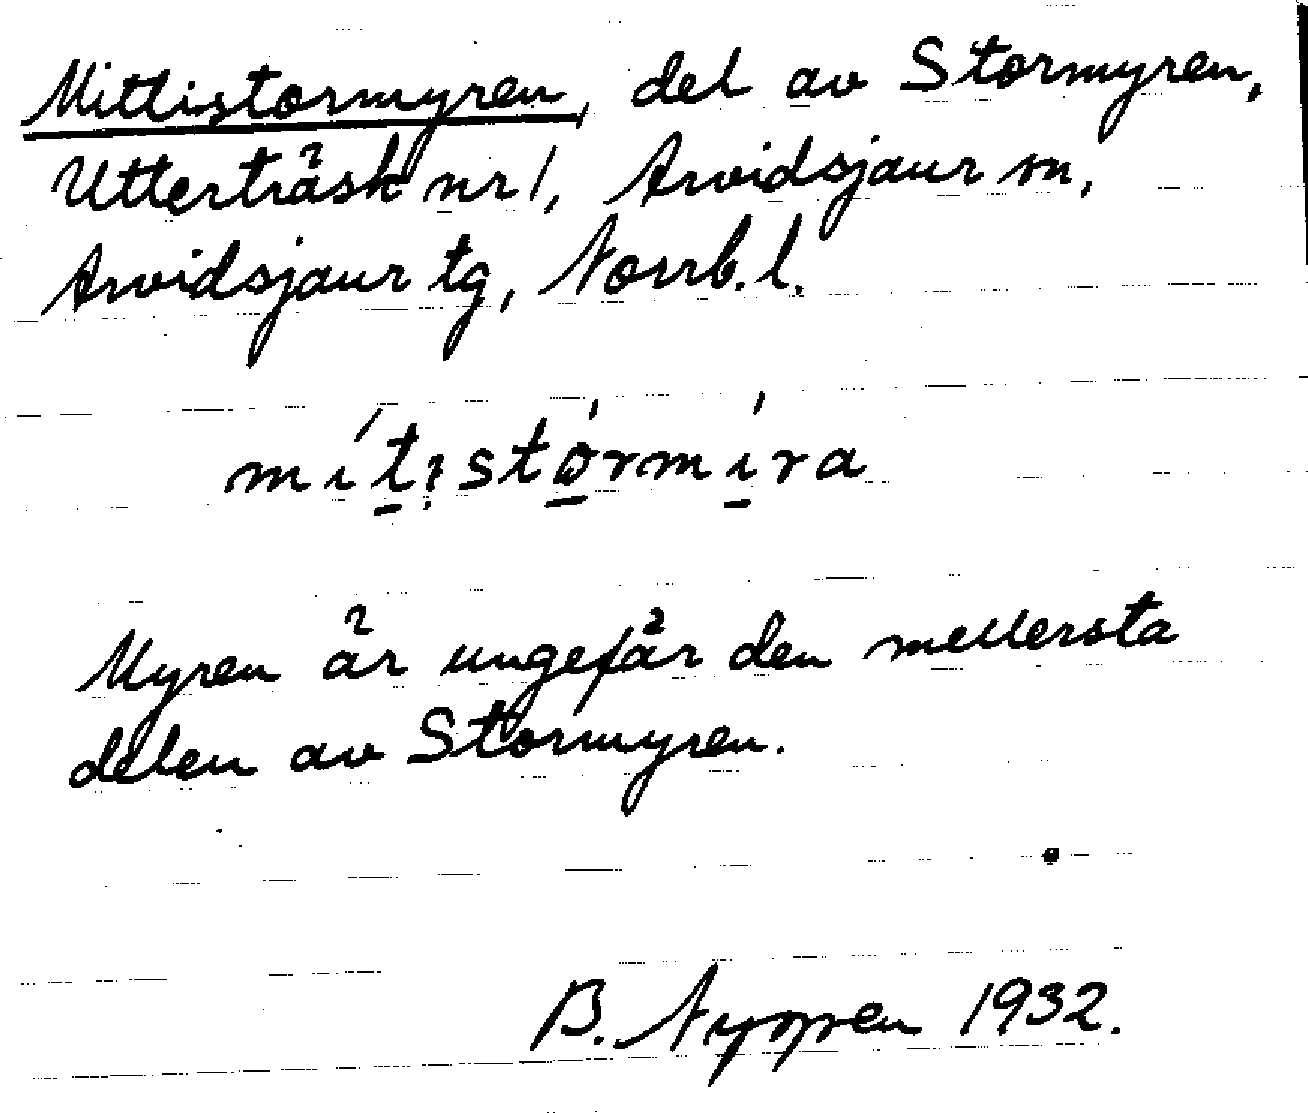 Mittistormyren, del av Stormyren,
Utterträsk nr 1, Arvidsjaur sn,
Arvidsjaur tg, Norrb. l.
mít̠ı̣stǫ́rmı̠́ra
Myren är ungefär den mellersta
delen av Stormyren.
B. 1932.